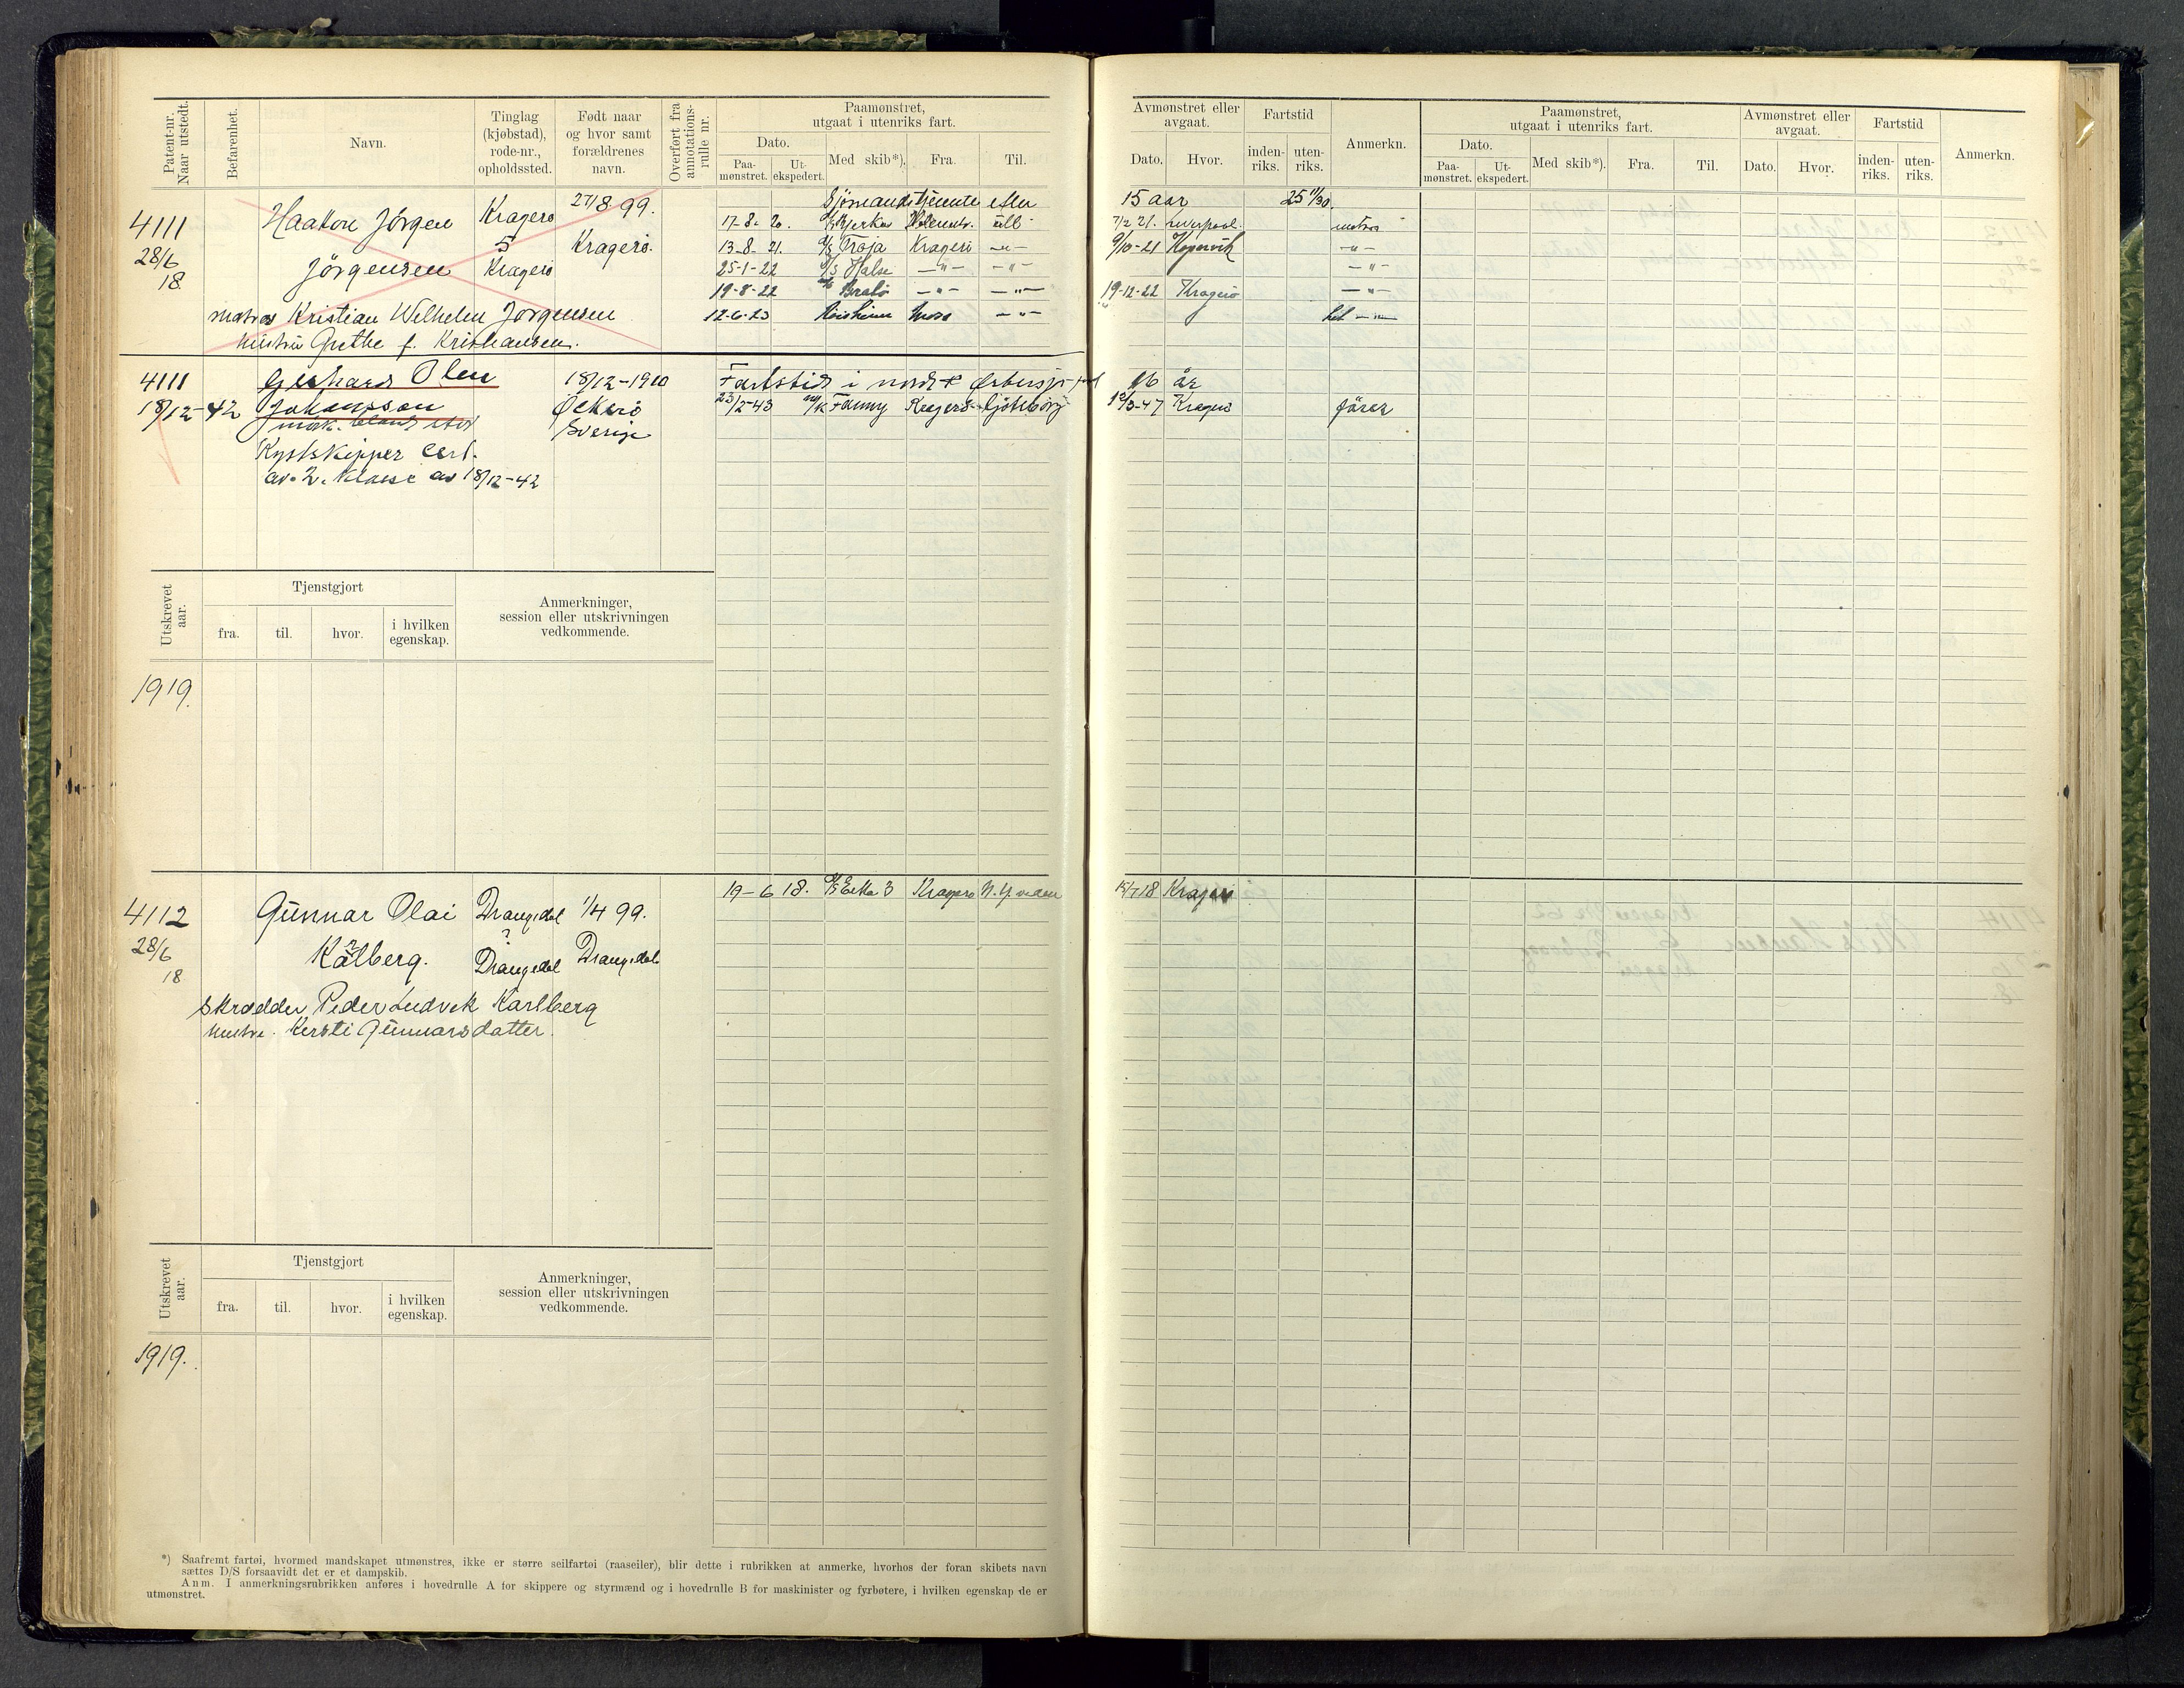 Patent-nr. Naar utstedt.
Befarenhet.
Navn.
Tinglag (kjøbstad), rode-nr., opholdssted.
Født naar og hvor samt forældrenes navn.
Overført fra annotations-rulle nr.
Paamønstret, utgaat i utenriks fart.
Dato.
Paa-mønstret.
Ut-ekspedert.
Med skib*).
Fra.
Til.
Avmønstret eller avgaat.
Dato.
Hvor.
Fartstid
inden-riks.
uten-riks.
Anmerkn.
Paamønstret, utgaat i utenriks fart.
Dato.
Paa-mønstret.
Ut-ekspedert.
Med skib*).
Fra.
Til.
Avmønstret eller avgaat.
Dato.
Hvor.
Fartstid
inden-riks.
uten-riks.
Anmerkn.
4111
28/6
18
Haakon Jörgen
Jörgensen
Kragerö
5
Kragerö
27/8 99.
Kragerö.
matros Kristian Wilhelm Jörgensen
hustru Grethe f. Kristiansen.
Sjömandstjeneste efter 15 aar 25 11/30
17-8- 20. 7/2 21. Liverpool. matros
13-8- 21. Troja Kragerö -"- 9/10-21 Kopervik -"-
25-1-22 Hals -"- -"- -"-
19-8-22 Bratö -"- -"- 19-12-22 Kragerö -"-
12-6-23 Moss -"- -"-
4111
18/12-42
Gerhard Olen
Johansson
18/12-1910
Öckerö
Sverige
Kystskipper cert.
av 2. klasse av 18/12-42
Fartstid i nord- & Östersjö- 16 år
23/2-43 M/K Fanny Kragerö Göteborg 10/3-47 Kragerö förer
Utskrevet aar.
Tjenstgjort
fra.
til.
hvor.
i hvilken egenskap.
Anmerkninger, session eller utskrivningen vedkommende.
1919.
4112
28/6
18
Gunnar Olai
Kålberg.
Drangedal
?
Drangedal
1/4 99.
Drangedal
Skrædder Peder Ludvik Karlberg
hustru. Kersti Gunnarsdatter.
19-6 18. Kragerö 15/7 18 Kragerö
Utskrevet aar.
Tjenstgjort
fra.
til.
hvor.
i hvilken egenskap.
Anmerkninger, session eller utskrivningen vedkommende.
1919.
*) Saafremt fartøi, hvormed mandskapet utmønstres, ikke er større seilfartøi (raaseiler), blir dette i rubrikken at anmerke, hvorhos der foran skibets navn
sættes D/S forsaavidt det er et dampskib.
Anm. I anmerkningsrubrikken anføres i hovedrulle A for skippere og styrmænd og i hovedrulle B for maskinister og fyrbøtere, i hvilken egenskap de er
utmønstret.